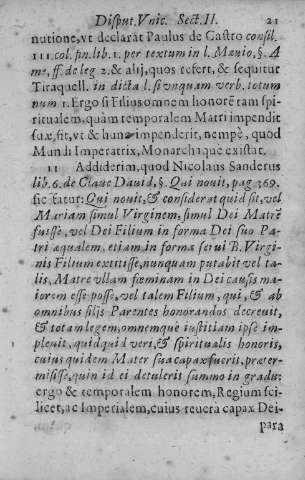 Disput. Vnic. Sect. II. 21
nutione, vt declarat Paulus de Castro consil.
111. col. fin. lib. 1. per textum in l. Mævio, §. A
me, ff. de leg 2. & alij, quos refert, & sequitur
Tiraquell. in dicta l. si vnquam verb. totum
num 1. Ergo si Filius omnem honorē tam spi-
ritualem, quàm temporalem Matri impendit
suæ, sit, vt & hunc impenderit, nempè, quod
Mundi Imperatrix, Monarchaque existat.
11 Addiderim, quod Nicolaus Sanderus
lib. 6. de Claue Dauid, §. Qui nouit, pag 369.
sic fatur: Qui nouit, & considerat quid sit, vel
Mariam simul Virginem, simul Dei Matrē
fuisse, vel Dei Filium in forma Dei suo Pa-
tri æqualem, etiam in forma serui B. Virgi-
nis Filium extitisse, nunquam putabit vel ta-
lis, Matre vllam fœminam in Dei causis ma-
iorem esse posse, vel talem Filium, qui, & ab
omnibus filijs Parentes honorandos decreuit,
& totam legem, omnemque iustitiam ipse im-
pleuit, quidquid veri, & spiritualis honoris,
cuius quidem Mater sua capax fuerit, præter-
misisse, quin id ei detulerit summo in gradu:
ergo & temporalem honorem, Regium sci-
licet, ac Imperialem, cuius reuera capax Dei-
para